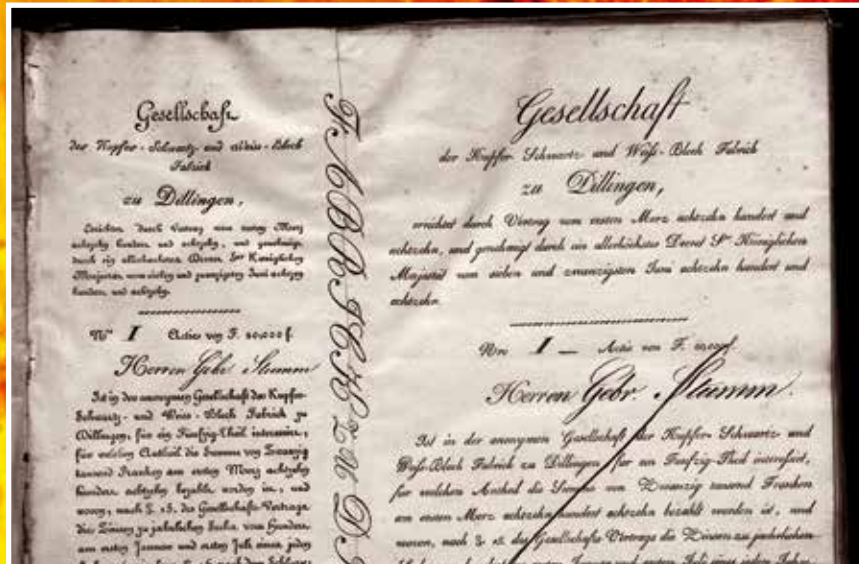 Gesellschaft
der Kupfer-Schwartz und Weiss-Blech
Fabrick
zu Dillingen,
Errichtet durch Vertrag vom ersten Merz
achtzehn hundert und achtzehn, und genehmigt
durch ein allerhöchstes Decret Sr Königlichen
Majestät vom sieben und zwanzigsten Juni achtzehn
hundert und achtzehn.
No I Actie von F. 20,000 f.
Herren Gebr. Stumm
Ist in der anonymen Gesellschaft der Kupfer-
Schwartz- und Weiss-Blech Fabrick zu
Dillingen, für ein Funfzig-Theil interessirt,
für welchen Antheil die Summe von Zwanzig
tausend Franken am ersten Merz achtzehn
hundert achtzehn bezahlt worden ist, und
wovon, nach §. 15. des Gesellschafts-Vertrags
die Zinsen zu jährlichen Sechs vom Hundert
am ersten Januar und ersten Juli eines jeden
FABRICK ZU D
Gesellschaft
der Kupfer Schwartz und Weiß-Blech Fabrick
zu Dillingen,
errichtet durch Vertrag vom ersten Merz achtzehn hundert und
achtzehn, und genehmigt durch ein allerhöchstes Decret Sr Königlichen
Majestät vom sieben und zwanzigsten Juni achtzehn hundert und
achtzehn.
Nro I — Actie von F. 20,000 f.
Herren Gebr. Stumm.
Ist in der anonymen Gesellschaft der Kupfer Schwartz und
Weiß-Blech Fabrick zu Dillingen für ein Funfzig-Theil interessirt,
für welchen Antheil die Summe von Zwanzig tausend Franken
am ersten Merz achtzehn hundert achtzehn bezahlt worden ist, und
wovon, nach §. 15. des Gesellschafts Vertrags die Zinsen zu jaehrlichen
ersten Januar und ersten Juli eines jeden Jahrs